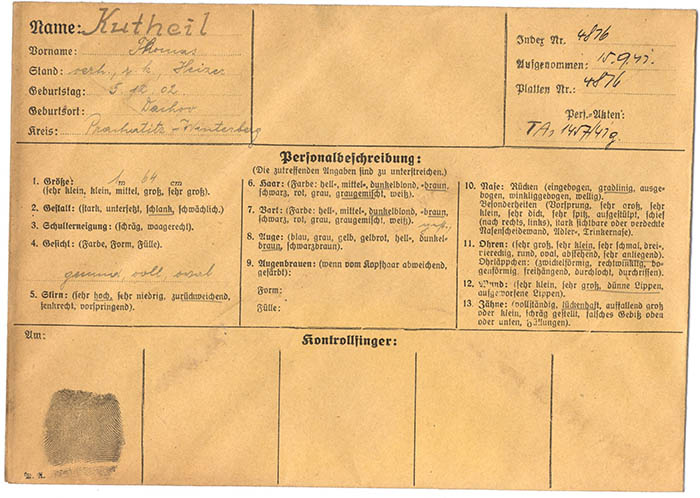 Name: Kutheil
Vorname: Thomas
Stand: verh., r. k., Heizer
Geburtstag: 5. 12. 02.
Geburtsort: Dachov
Kreis: Prachatitz-Winterberg
Index Nr. 4876
Aufgenommen: 15.9.41.
Platten Nr.: 4876
Pers.-Akten:
TA, 1457/41 g.
Personalbeschreibung:
(Die zutreffenden Angaben sind zu unterstreichen.)
1. Größe: 1 m 64 cm
(sehr klein, klein, mittel, groß, sehr groß).
2. Gestalt: (stark, untersetzt, schlank, schwächlich).
3. Schulterneigung: (schräg, waagerecht).
4. Gesicht: (Farbe, Form, Fülle).
gesund, voll, oval
5. Stirn: (sehr hoch, sehr niedrig, zurückweichend,
senkrecht, vorspringend).
6. Haar: (Farbe: hell-, mittel-, dunkelblond, -braun,
schwarz, rot, grau, graugemischt, weiß).
7. Bart: (Farbe: hell-, mittel-, dunkelblond, -braun,
schwarz, rot, grau, graugemischt, weiß).
8. Auge: (blau, grau, gelb, gelbrot, hell-, dunkel-
braun, schwarzbraun).
9. Augenbrauen: (wenn vom Kopfhaar abweichend,
gefärbt):
Form:
Fülle:
10. Nase: Rücken (eingebogen, gradlinig, ausge-
bogen, winkliggebogen, wellig).
Besonderheiten (Vorsprung, sehr groß, sehr
klein, sehr dick, sehr spitz, aufgestülpt, schief
(nach rechts, links), stark sichtbare oder verdeckte
Nasenscheidewand, Adler-, Trinkernase).
11. Ohren: (sehr groß, sehr klein, sehr schmal, drei-,
viereckig, rund, oval, abstehend, sehr anliegend).
Ohrläppchen: (zwickelförmig, rechtwinklig, bo-
genförmig, freihängend, durchlocht, durchrissen).
12. Mund: (sehr klein, sehr groß, dünne Lippen,
aufgeworfene Lippen).
13. Zähne: (vollständig, lückenhaft, auffallend groß
oder klein, schräg gestellt, falsches Gebiß oben
oder unten, Füllungen).
Am:
Kontrollfinger: